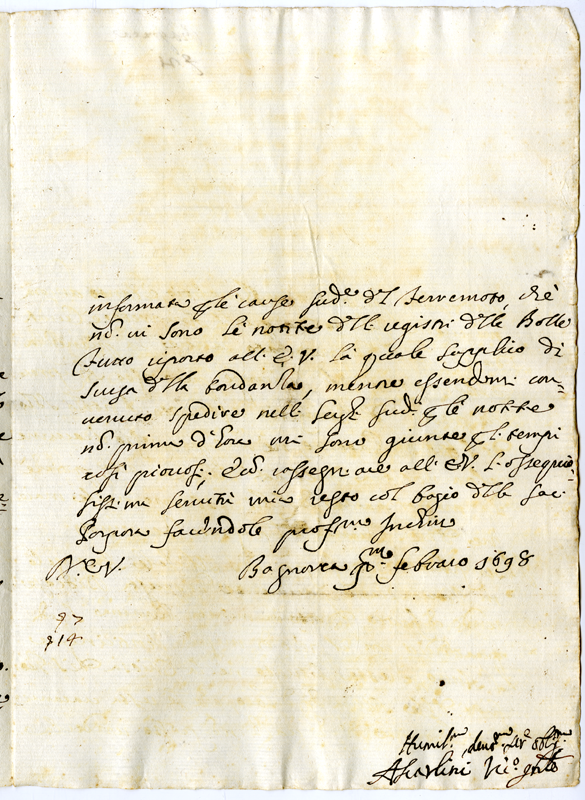 informata p le cause sud.e del terremoto, che
nō vi sono le notitie delli registri delle Bolle
Tutto riporto all' E.V. la quale supplico di
scusa della tardanza, mentre essendomi con=
venuto spedire nelli luoghi sud. p le notitie
nō prima d'hora mi sono giunte p li tempi
così piovosi; & con rassegnare all' E.V. l'ossequio=
sissima servitù mia resto col bagio della sac.
Porpora facendole prof.ma
D. E. V. Bagnorea p.mo febraro 1698
97
214
Humil.mo devot.mo
Vic.o